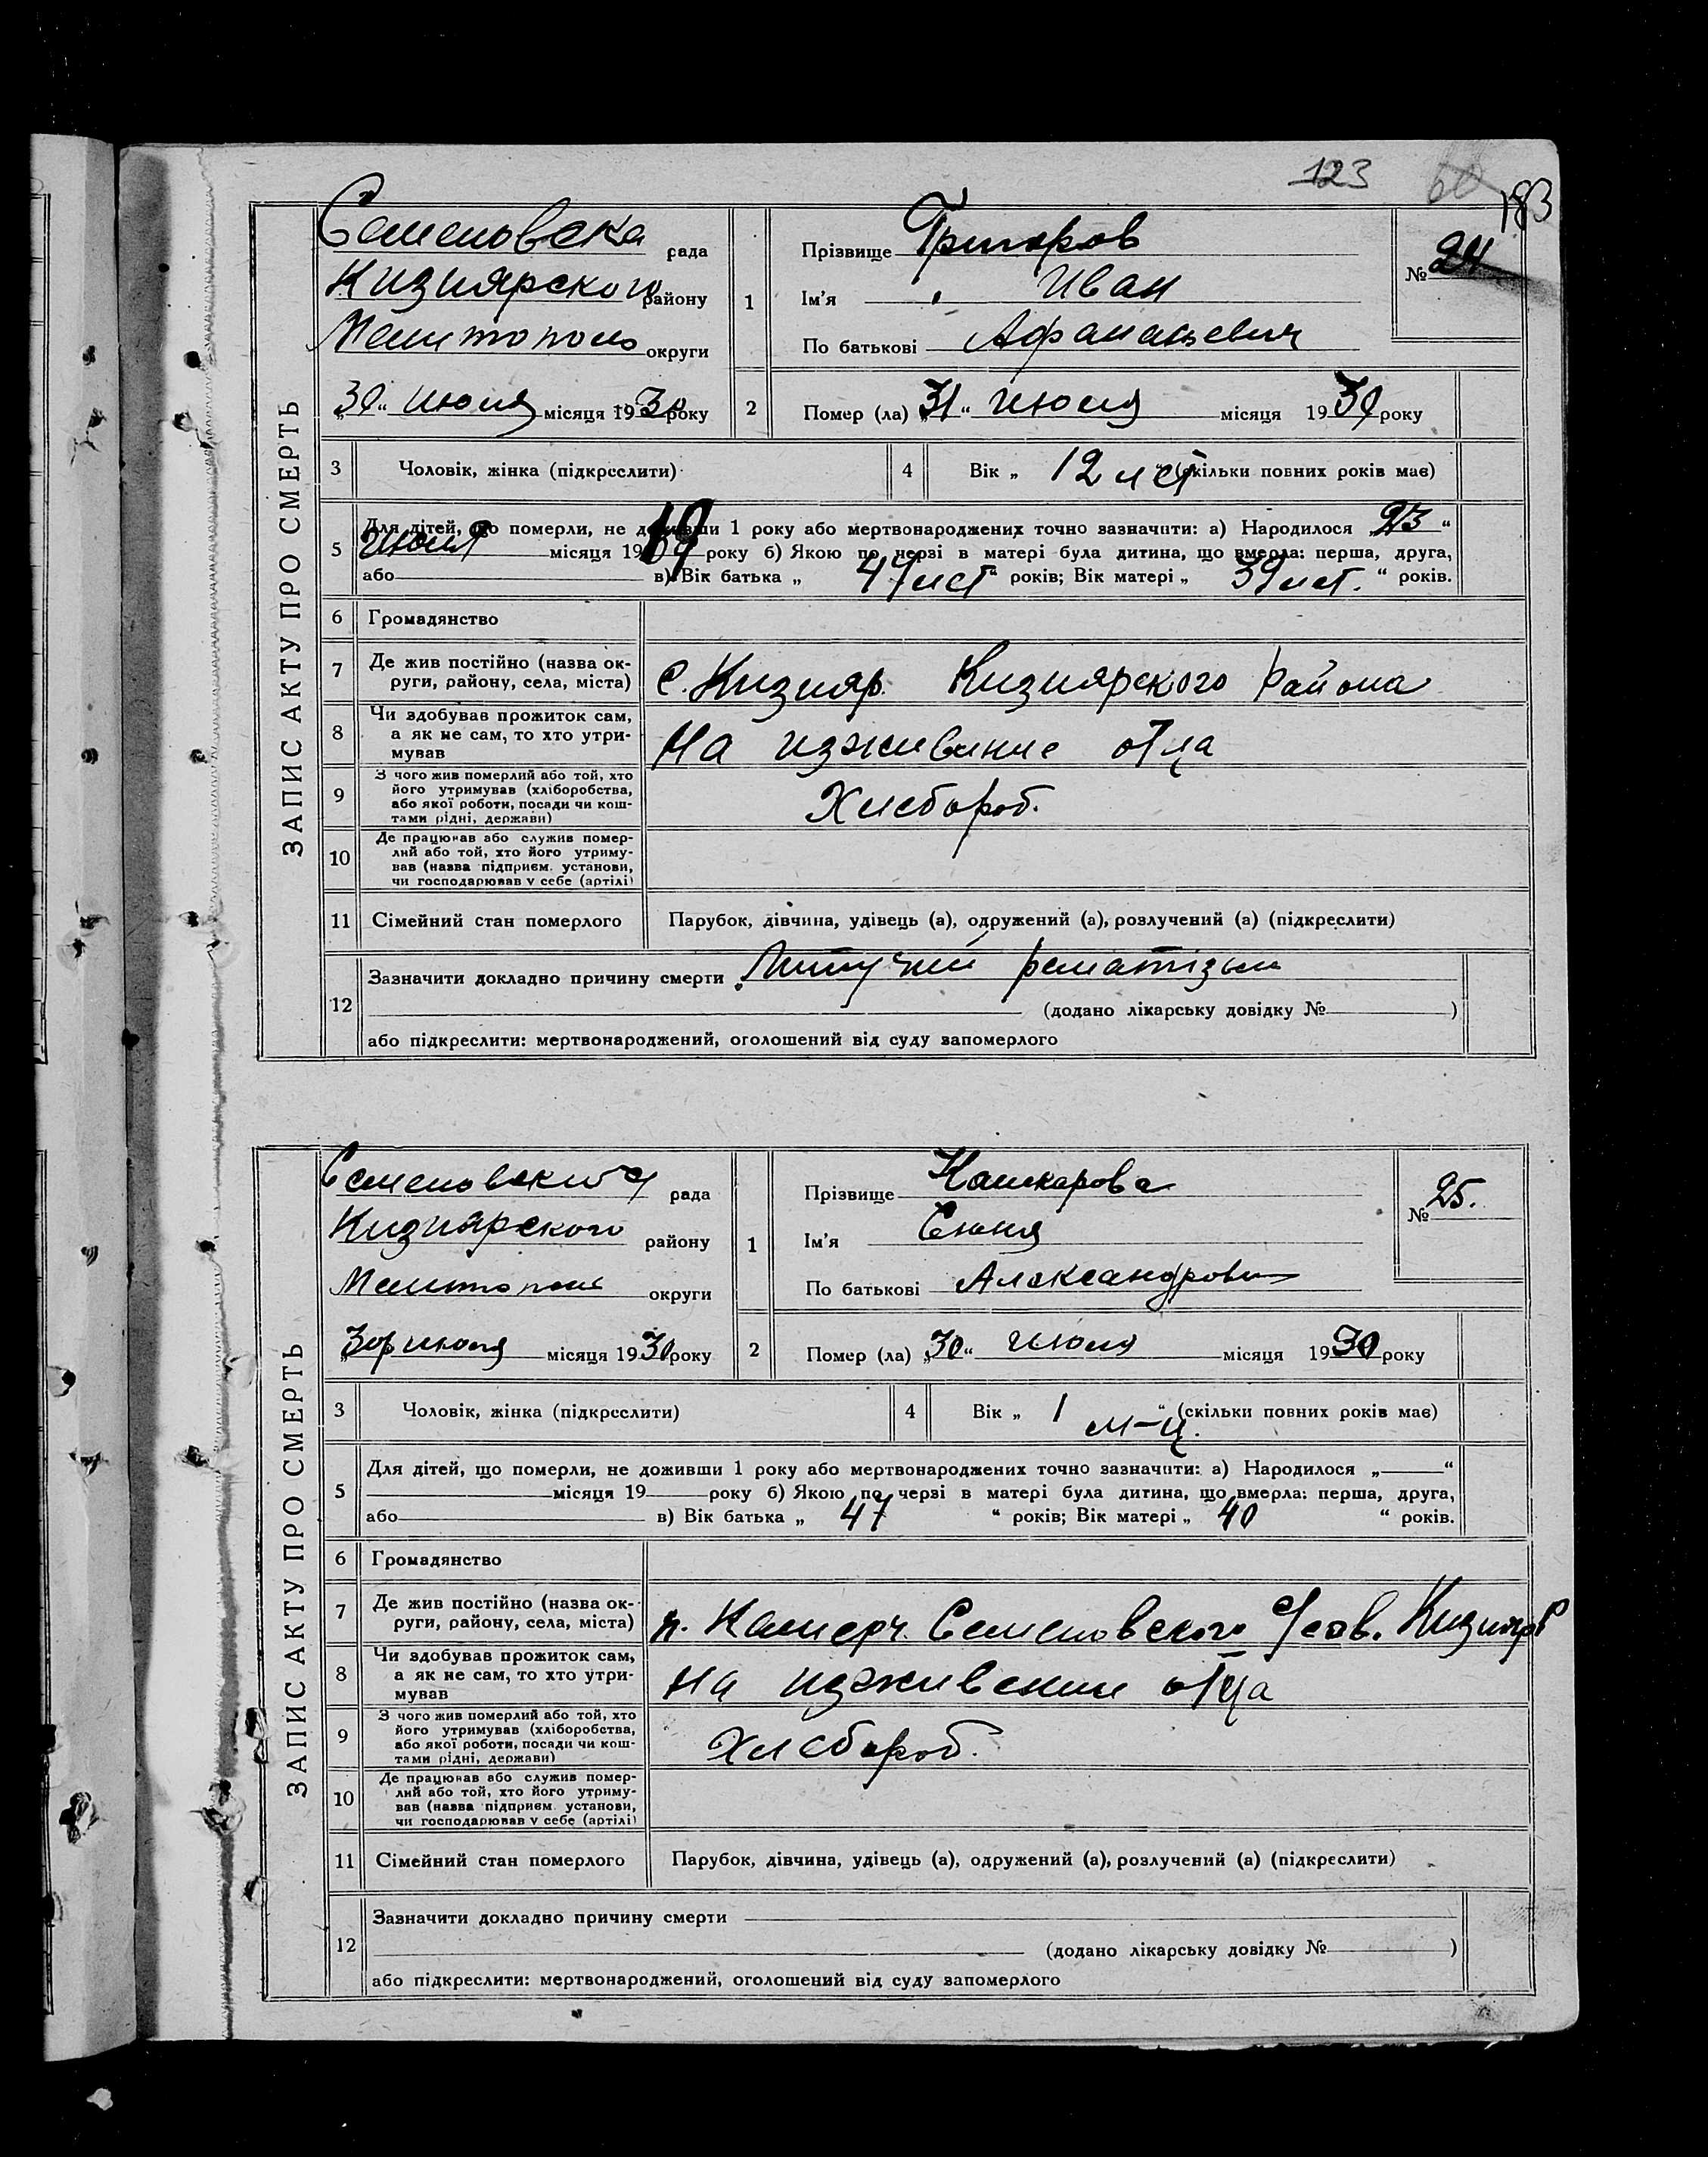 123 60 183
ЗАПИС АКТУ ПРО СМЕРТЬ
Семеновска рада
Кизиярского району
Мелитополь округи
„30“ июля місяця 1930 року
1 Прізвище Григоров
Ім'я Иван
По батькові Афанасьевич
№ 24
2 Помер (ла) „31“ июля місяця 1930 року
3 Чоловік, жінка (підкреслити)
4 Вік „ 12 лет (скільки повних років має)
5 Для дітей, що померли, не доживши 1 року або мертвонароджених точно зазначити: а) Народилося „23“
июля місяця 19 року б) Якою по черзі в матері була дитина, що вмерла: перша, друга,
або в) Вік батька „ 47 лет “ років; Вік матері „ 39 лет. “ років.
6 Громадянство
7 Де жив постійно (назва ок-
руги, району, села, міста) с. Кизияр. Кизиярского района
8 Чи здобував прожиток сам,
а як не сам, то хто утри-
мував На иждивение отца
9 З чого жив померлий або той, хто
його утримував (хліборобства,
або якої роботи, посади чи кош-
тами рідні, держави) Хлебороб.
10 Де працював або служив помер-
лий або той, хто його утриму-
вав (назва підприєм. установи,
чи господарював у себе (артілі)
11 Сімейний стан померлого Парубок, дівчина, удівець (а), одружений (а), розлучений (а) (підкреслити)
12 Зазначити докладно причину смерти Литучий рематізьм
(додано лікарську довідку № )
або підкреслити: мертвонароджений, оголошений від суду запомерлого
ЗАПИС АКТУ ПРО СМЕРТЬ
Семеновский рада
Кизиярского району
Мелитополь округи
„30“ июля місяця 1930 року
1 Прізвище Кашкарова
Ім'я Сюня
По батькові Александрович
№ 25.
2 Помер (ла) „30“ июля місяця 1930 року
3 Чоловік, жінка (підкреслити)
4 Вік „ 1 м-ц. “ (скільки повних років має)
5 Для дітей, що померли, не доживши 1 року або мертвонароджених точно зазначити: а) Народилося „ “
місяця 19 року б) Якою по черзі в матері була дитина, що вмерла: перша, друга,
або в) Вік батька „ 47 “ років; Вік матері „ 40 “ років.
6 Громадянство
7 Де жив постійно (назва ок-
руги, району, села, міста) Семеновского с/сов. Кизияр
8 Чи здобував прожиток сам,
а як не сам, то хто утри-
мував На иждивении отца
9 З чого жив померлий або той, хто
його утримував (хліборобства,
або якої роботи, посади чи кош-
тами рідні, держави) Хлебороб.
10 Де працював або служив помер-
лий або той, хто його утриму-
вав (назва підприєм. установи,
чи господарював у себе (артілі)
11 Сімейний стан померлого Парубок, дівчина, удівець (а), одружений (а), розлучений (а) (підкреслити)
12 Зазначити докладно причину смерти
(додано лікарську довідку № )
або підкреслити: мертвонароджений, оголошений від суду запомерлого